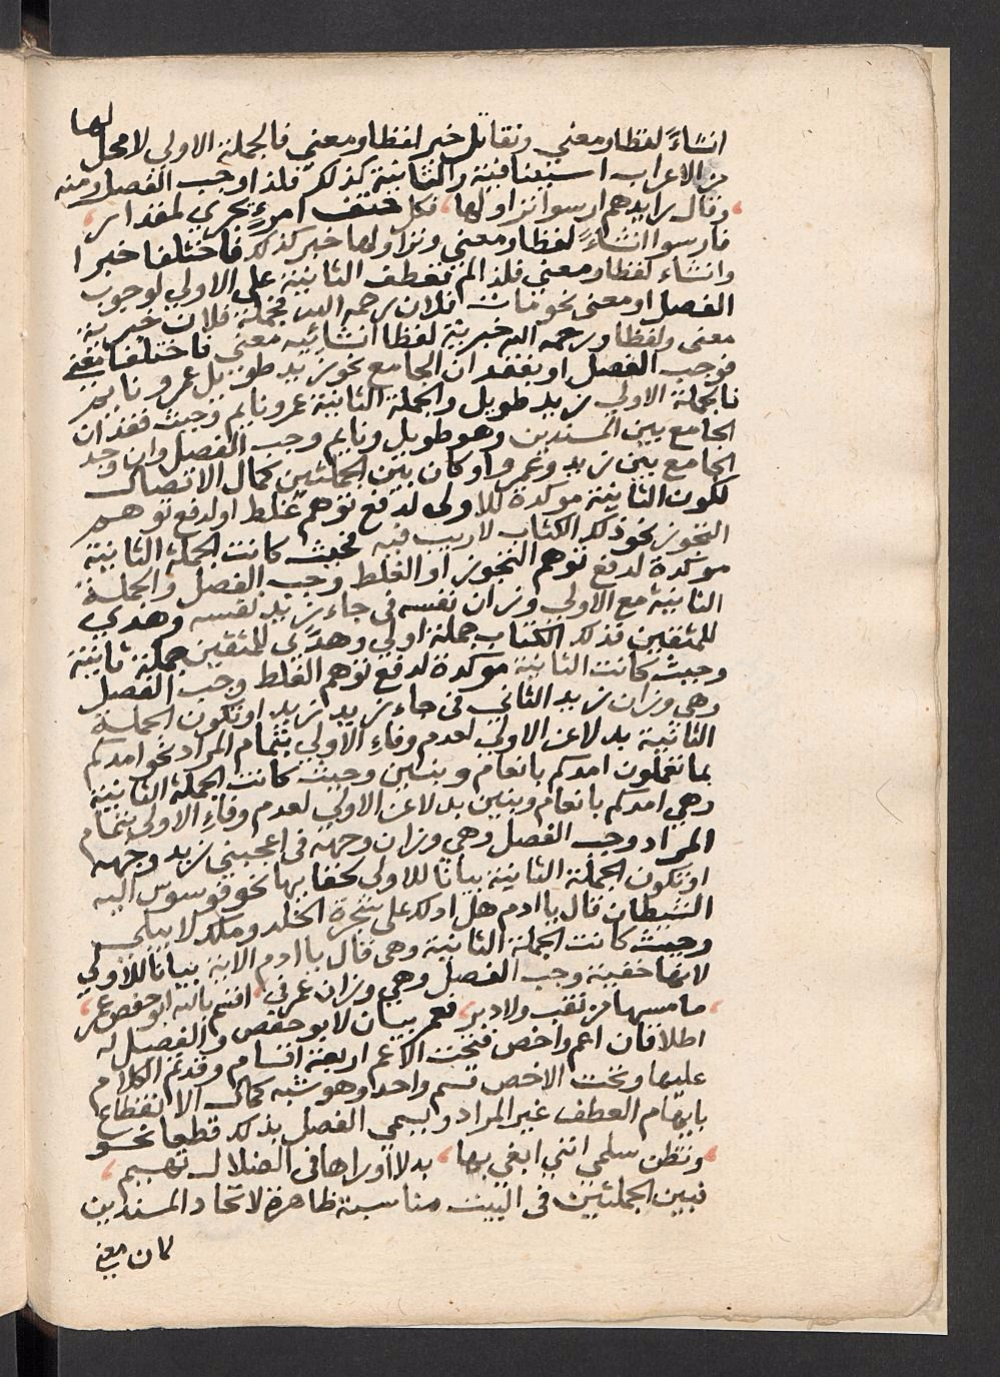 انشاءً لفظا ومعني ونقاتل خبر لفظا ومعني فالجملة الاولي لا محل لها
من الاعراب استينافية والثانية كذلك فلذا وجب الفصل ومنه
وقال رايدهم ارسوا نزاولها فكل حتف امرءٍ يجري لمقدار
فارسوا انشاءً لفظا ومعني ونزاولها خبر كذلك فاختلفا خبرا
وانشاء لفظا ومعني فلذا لم تعطف الثانية علي الاولي لوجوب
الفصل او معنى نحو مات فلان رحمه الله فجملة فلان خبرية
معنى ولفظا ورحمه الله خبرية لفظا انشائيه معني فاختلفا معني
فوجب الفصل او بفقدان الجامع نحو زيد طويل عمرو نايم
فالجملة الاولي زيد طويل والجملة الثانية عمرو نايم وحيث فقدان
الجامع بين المسندين وهو طويل ونايم وجب الفصل وان وجد
الجامع بين زيد وعمرو او كان بين الجملتين كمال الاتصال
لكون الثانية موكدة للاولى لدفع توهم غلط او لدفع توهم
التجوز نحو ذلك الكتاب لا ريب فيه فحيث كانت الجملة الثانية
موكدة لدفع توهم التجوز او الغلط وجب الفصل والجملة
الثانية مع الاولي وزان نفسه في جاء زيد نفسه وهدي
للمتقين فذلك الكتاب جملة اولي وهدًى للمتقين جملة ثانية
وحيث كانت الثانية موكدة لدفع توهم الغلط وجب الفصل
وهي وزان زيد الثاني في جاء زيد زيد او تكون الجملة
الثانية بدلا عن الاولي لعدم وفاء الاولي بتمام المراد نحو امدكم
بما تعملون امدكم بانعام وبنين وحيث كانت الجملة الثانية
وهي امدكم بانعام وبنين بدلا عن الاولي لعدم وفاءِ الاولي بتمام
المراد وجب الفصل وهي وزان وجهه في اعجبني زيد وجهه
او تكون الجملة الثانية بيانا للاولي لخفا بها نحو فوسوس اليه
الشيطان قال يا ادم هل ادلك على شجرة الخلد وملك لا يبلي
وحيث كانت الجملة الثانية وهي قال يا ادم الاية بيانا للاولي
لانها خفية وجب الفصل وهي وزان عمر في اقسم بالله ابو حفص عمر
ما مسها من نقب ولا دبر فعمر بيان لابو حفص والفصل له
اطلاقان اعم واخص فتحت الاعم اربعة اقسام وقد تم الكلام
عليها وتحت الاخص قسم واحد وهو شبه كمال الانقطاع
بايهام العطف غير المراد ويسمي الفصل بذلك قطعا نحو
وتظن سلمي انني ابغي بها بدلا اوراها في الضلال تهيم
فبين الجملتين في البيت مناسبة ظاهرة لاتحاد المسندين
لان معنى